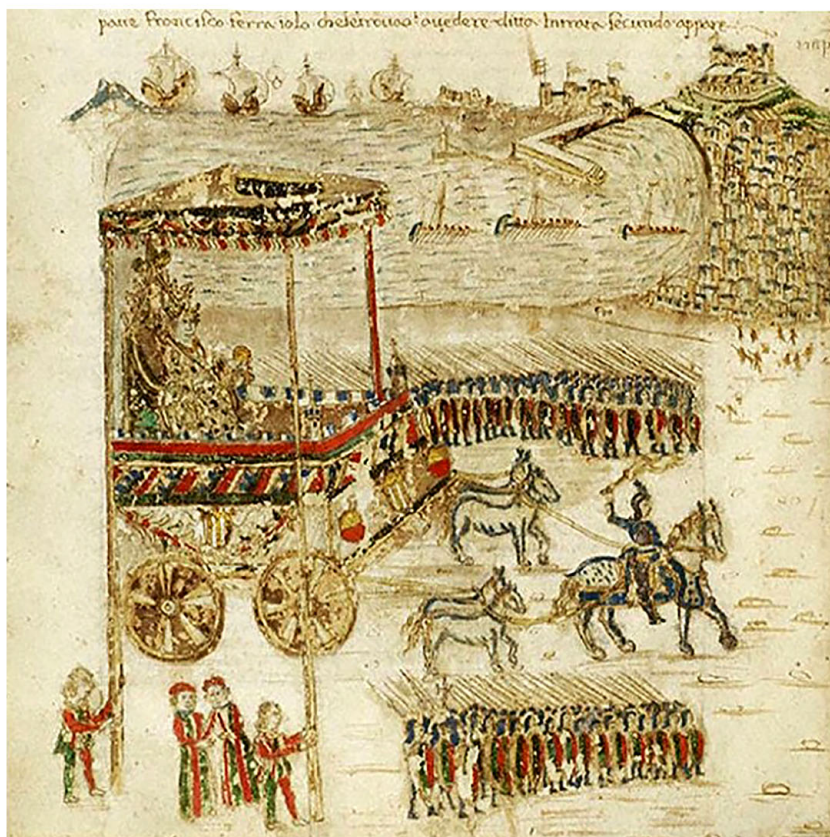 pave Francisco ferra iolo che se trovao a vedere ditta Intrata secundo appare